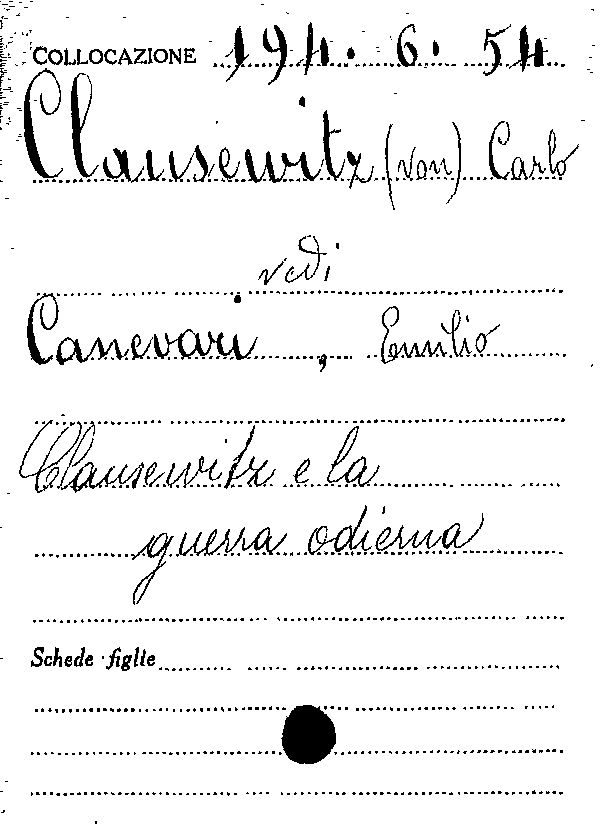 COLLOCAZIONE 194. 6. 54
Clausewitz (von) Carlo
vedi
Canevari, Emilio
Clausewitz e la
guerra odierna
Schede figlie